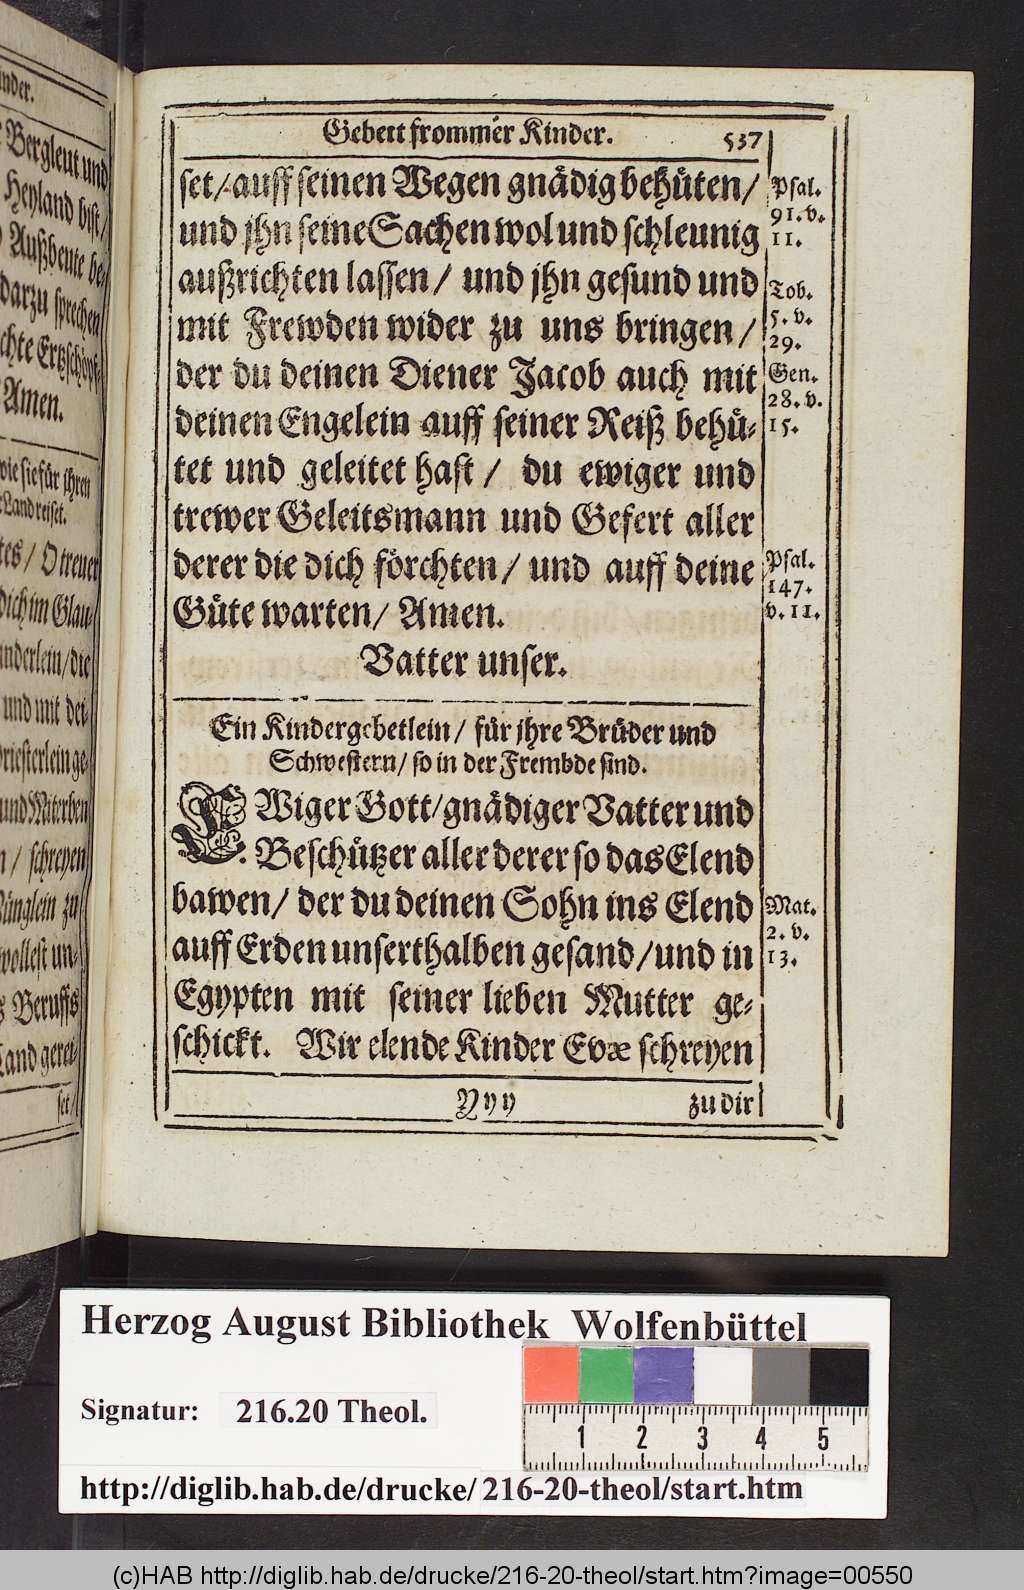 inder.
Bergleut und
Heyland bist/
Außbeute be-
darzu sprechen
chte Ertzschöpf-
Amen.
wie sie für ihren
Land reiset.
tes/ O treuer
dich im Glau-
inderlein/ die
und mit dei-
riesterlein ge-
und Miterben
n/ schreyen
ünglein zu
wollest un-
s Beruffs
Land gerei-
set/
Gebett frommer Kinder. 537
set/ auff seinen Wegen gnädig behüten/
und jhn seine Sachen wol und schleunig
außrichten lassen/ und jhn gesund und
mit Frewden wider zu uns bringen/
der du deinen Diener Jacob auch mit
deinen Engelein auff seiner Reiß behü-
tet und geleitet hast/ du ewiger und
trewer Geleitsmann und Gefert aller
derer die dich förchten/ und auff deine
Güte warten/ Amen.
Vatter unser.
Psal.
91. v.
11.
Tob.
5. v.
29.
Gen.
28. v.
15.
Psal.
147.
v. 11.
Ein Kindergebetlein/ für jhre Brüder und
Schwestern/ so in der Frembde sind.
EWiger Gott/ gnädiger Vatter und
Beschützer aller derer so das Elend
bawen/ der du deinen Sohn ins Elend
auff Erden unserthalben gesand/ und in
Egypten mit seiner lieben Mutter ge-
schickt. Wir elende Kinder Evæ schreyen
Mat.
2. v.
13.
Yyy zu dir
Herzog August Bibliothek Wolfenbüttel
Signatur: 216.20 Theol.
1 2 3 4 5
http://diglib.hab.de/drucke/216-20-theol/start.htm
(c)HAB http://diglib.hab.de/drucke/216-20-theol/start.htm?image=00550